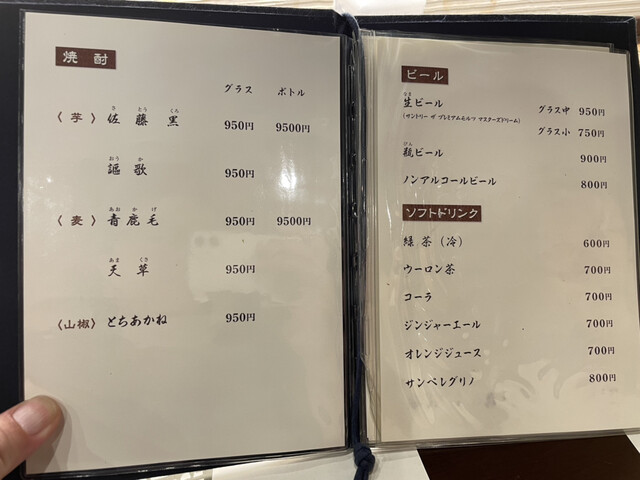 焼酎
グラス ボトル
〈芋〉 佐藤黒 950円 9500円
さ とう くろ
謳歌 950円
おう か
〈麦〉 青鹿毛 950円 9500円
あお か げ
天草 950円
あま くさ
〈山椒〉 とちあかね 950円
ビール
生ビール グラス中 950円
なま
(サントリー ザ プレミアムモルツ マスターズドリーム)
グラス小 750円
瓶ビール 900円
びん
ノンアルコールビール 800円
ソフトドリンク
緑茶(冷) 600円
ウーロン茶 700円
コーラ 700円
ジンジャーエール 700円
オレンジジュース 700円
サンペレグリノ 800円